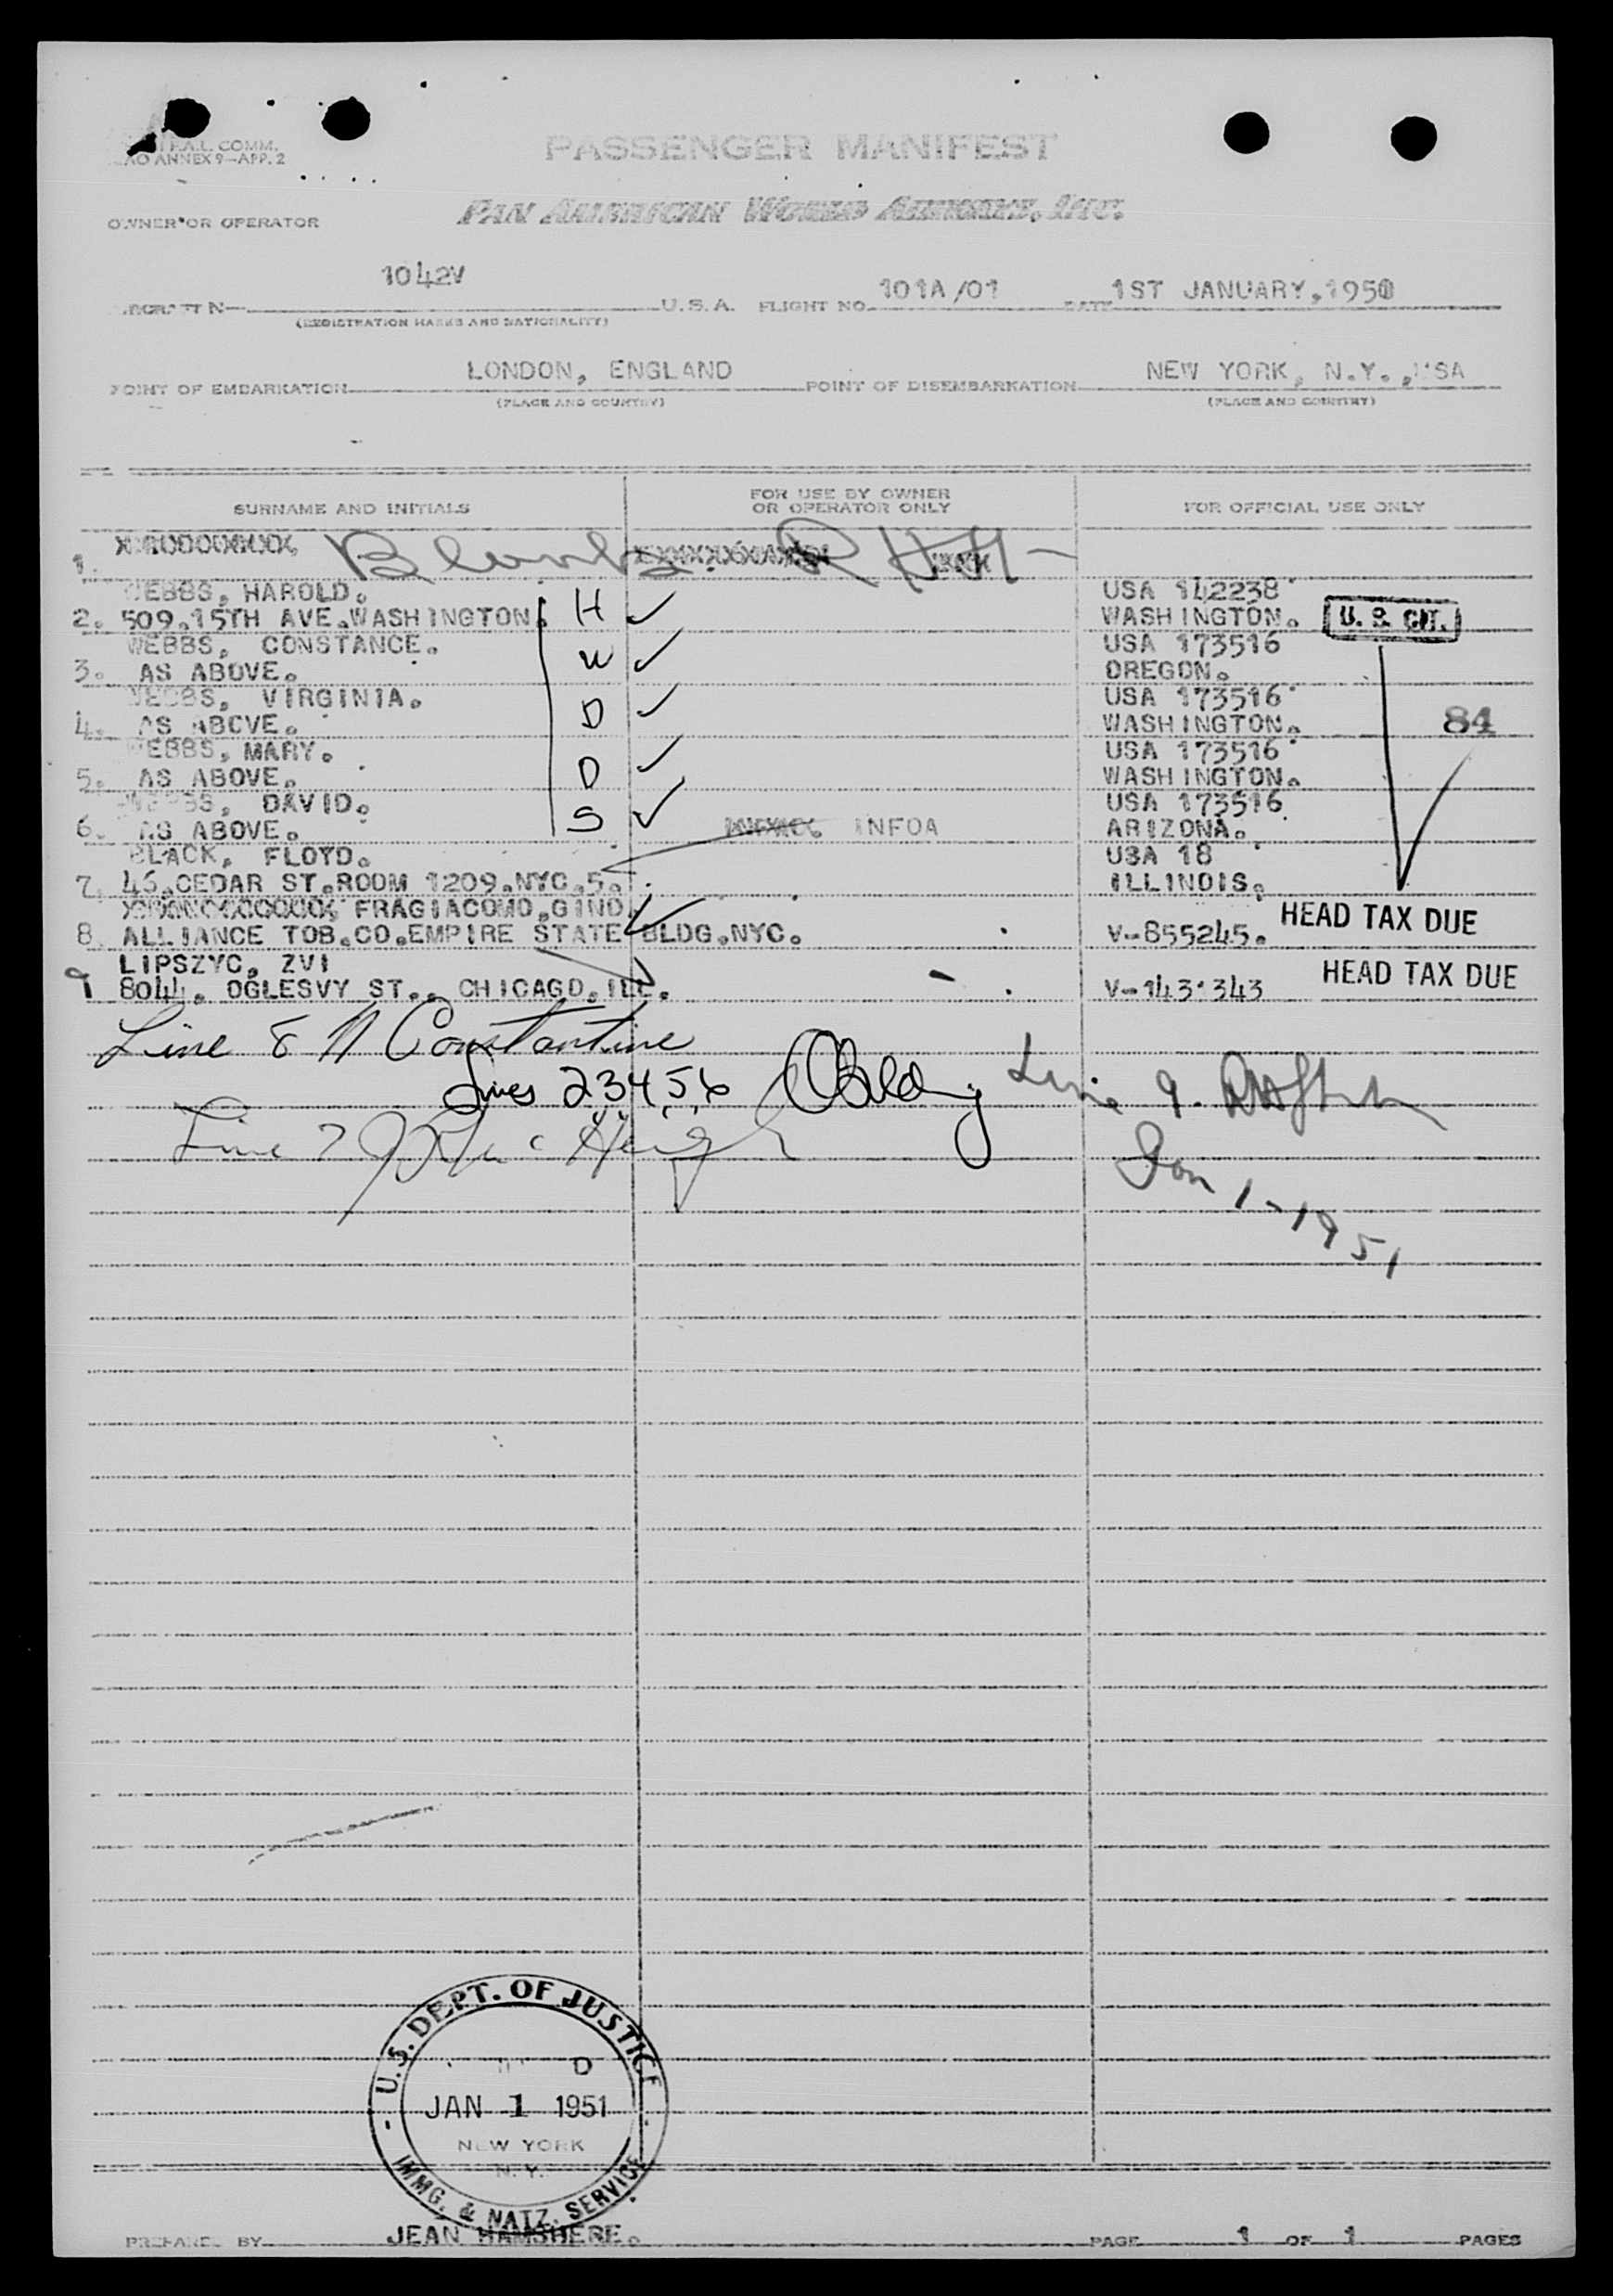 F.A.L. COMM.
ANNEX 9-APP. 2
PASSENGER MANIFEST
OWNER OR OPERATOR PAN AMERICAN WORLD AIRWAYS, INC.
1042V U.S.A. FLIGHT NO. 101A/01 DATE 1ST JANUARY, 1950
(REGISTRATION MARKS AND NATIONALITY)
POINT OF EMBARKATION LONDON, ENGLAND POINT OF DISEMBARKATION NEW YORK, N.Y., USA
(PLACE AND COUNTRY) (PLACE AND COUNTRY)
SURNAME AND INITIALS FOR USE BY OWNER OR OPERATOR ONLY FOR OFFICIAL USE ONLY
1. Blank
WEBBS, HAROLD. USA 142238
2. 509.15TH AVE.WASHINGTON. H ✓ WASHINGTON. U. S. CIT.
WEBBS, CONSTANCE. USA 173516
3. AS ABOVE. W ✓ OREGON.
WEBBS, VIRGINIA. USA 173516
4. AS ABOVE. D ✓ WASHINGTON. 84
WEBBS, MARY. USA 173516
5. AS ABOVE. D ✓ WASHINGTON.
WEBBS, DAVID. USA 173516
6. AS ABOVE. S ✓ INFOA ARIZONA.
BLACK, FLOYD. USA 18
7. 46.CEDAR ST.ROOM 1209.NYC.5. ILLINOIS.
FRAGIACOMO,GINO
8. ALLIANCE TOB.CO.EMPIRE STATE BLDG.NYC. V-855245. HEAD TAX DUE
LIPSZYC, ZVI
9 8044. OGLESVY ST., CHICAGO, ILL. V-143'343 HEAD TAX DUE
Line 8 N Constantine
Lines 2 3 4 5 6 Line 9.
Line 7
Jan 1-1951
U.S. DEPT. OF JUSTICE
JAN 1 1951
NEW YORK
N.Y.
IMMG. & NATZ. SERVICE
PREPARED BY JEAN HAMSHERE. PAGE 1 OF 1 PAGES